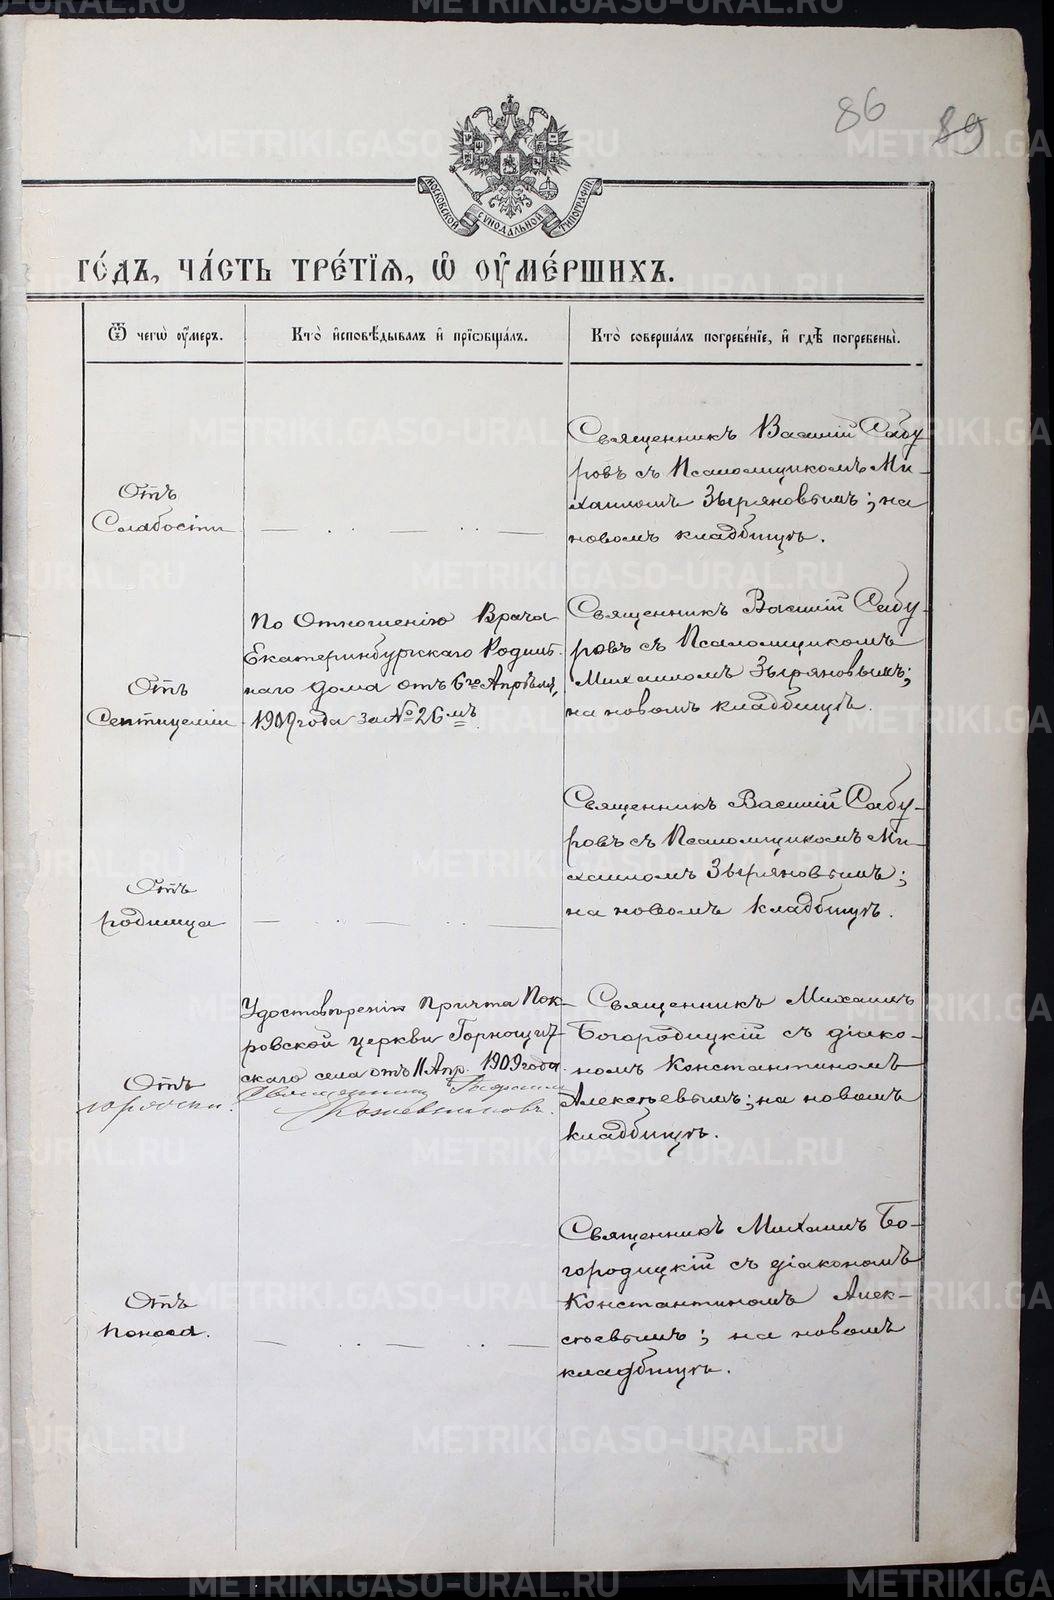 86
89
МОСКОВСКОЙ СѴНОДАЛЬНОЙ ТИПОГРАФІИ
ГО́ДЪ, ЧА́СТЬ ТРЕ́ТІЯ, Ѡ҆ ОУ҆МЕ́РШИХЪ.
Ѿ чегѡ̀ оу҆́меръ.
Кто̀ и҆сповѣ́дывалъ и҆ прїѡбща́лъ.
Кто̀ соверша́лъ погребе́нїе, и҆ гдѣ̀ погребены̀.
Отъ
Слабости
Священникъ Василій Сабу
ровъ съ Псаломщикомъ Ми-
хаиломъ Зыряновымъ; на
новомъ кладбищѣ.
Отъ
Септицеміи
По Отношенію Врача
Екатеринбургскаго Родиль
наго Дома отъ 6го Апрѣля,
1909 года за № 26мъ
Священникъ Василій Сабу-
ровъ съ Псаломщикомъ
Михаиломъ Зыряновымъ;
на новомъ кладбищѣ.
Отъ
родимца
Священникъ Василій Сабу-
ровъ съ Псаломщикомъ Ми-
хаиломъ Зыряновымъ;
на новомъ кладбищѣ.
Отъ
Удостовѣреніе Причта Пок-
ровской церкви Горнощит-
скаго села отъ 11 Апр. 1909 года.
Священникъ
Кожевниковъ.
Священникъ Михаилъ
Богородицкій съ діако-
номъ Константиномъ
Алексѣевымъ; на новомъ
кладбищѣ.
Отъ
поноса.
Священникъ Михаилъ Бо-
городицкій съ діакономъ
Константиномъ Алек-
сѣевымъ; на новомъ
кладбищѣ.
METRIKI.GASO-URAL.RU